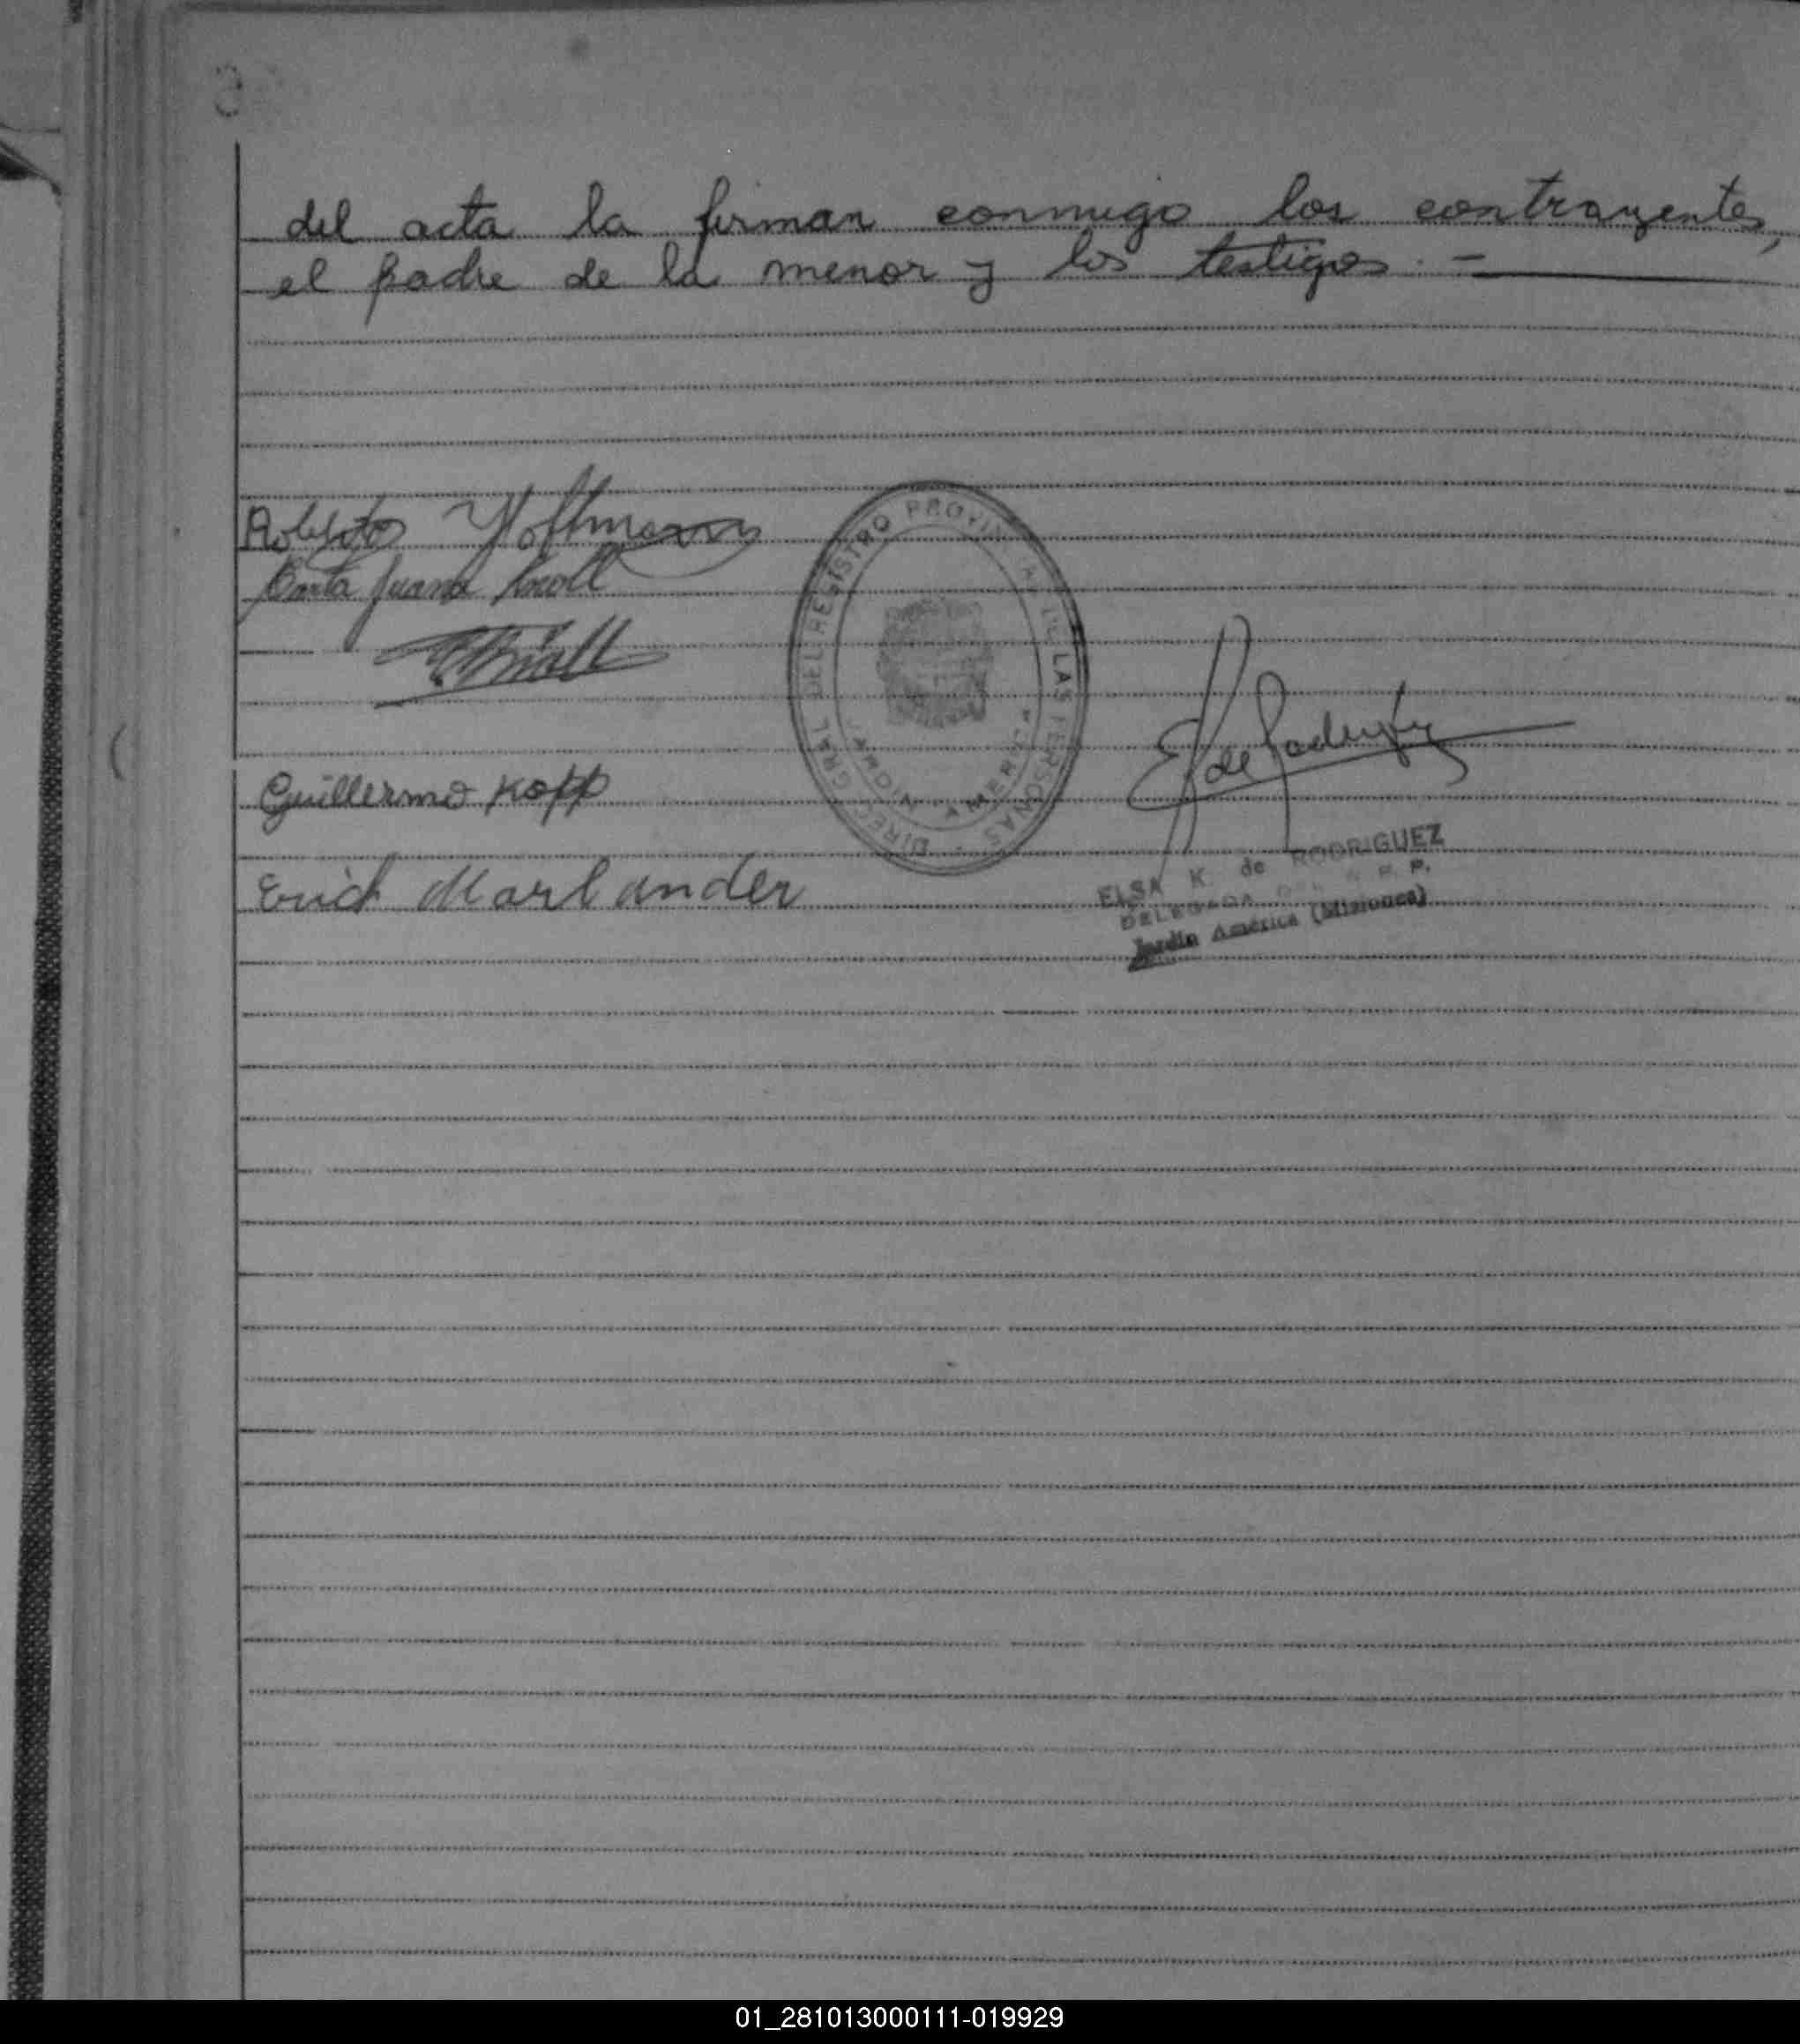 del acta la firman conmigo los contrayentes,
el padre de la menor y los testigos. -
Roberto Hoffmann
Juana Knoll
Guillermo Kopp
Erich Marlander
DIREC. GRAL. DEL REGISTRO PROVINCIAL DE LAS PERSONAS
AMERICA
E K de Rodriguez
ELSA K. de RODRIGUEZ
DELEGADA DEL R. P. P.
Jardín América (Misiones)
01_281013000111-019929